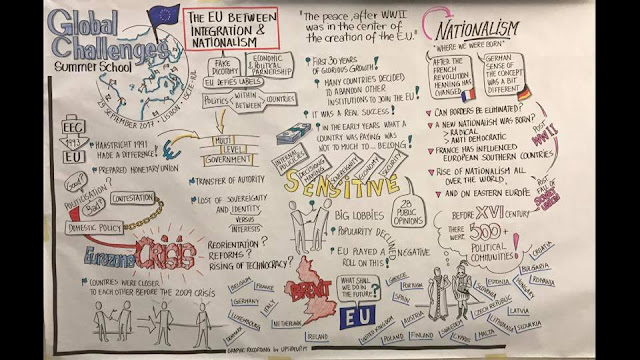 Global
Challenges
Summer School
29 SEPTEMBER 2017 - LISBON - ISCTE-IUL
THE EU BETWEEN
INTEGRATION &
NATIONALISM
FAKE
DICOTOMY
ECONOMIC
& POLITICAL
PARNERSHIP
EU DEFIES LABELS
POLITICS
WITHIN
BETWEEN
COUNTRIES
EEC
1993
EU
MAASTRICHT 1991
MADE A DIFFERENCE!
PREPARED MONETARY UNION
MULTI
LEVEL
GOVERNMENT
TRANSFER OF AUTORITY
LOST OF SOVEREIGNTY
AND IDENTITY
VERSUS
INTERESTS
REORIENTATION?
REFORMS?
RISING OF TECHNOCRACY?
GOOD?
POLITICISATION?
BAD?
CONTESTATION
DOMESTIC POLICY
Eurozone
CRISIS
COUNTRIES WERE CLOSER
TO EACH OTHER BEFORE THE 2009 CRISIS
"THE PEACE, AFTER WWII
WAS IN THE CENTER OF
THE CREATION OF THE EU."
FIRST 30 YEARS
OF GLORIOUS GROWTH!
MANY COUNTRIES DECIDED
TO ABANDON OTHER
INSTITUTIONS TO JOIN THE EU!
IT WAS A REAL SUCCESS!
IN THE EARLY YEARS WHAT A
COUNTRY WAS PAYING WAS
NOT TO MUCH TO... BELONG!
INTERNAL
POLICIES
DECISIONS
MAKING
SOVEREIGNTY
ECONOMY
SECURITY
SENSITIVE
28
PUBLIC
OPINIONS
BIG LOBBIES
POPULARITY DECLINED
EU PLAYED A NEGATIVE
ROLL ON THIS!
BREXIT
WHAT SHALL
WE DO IN
THE FUTURE?
EU
NATIONALISM
"WHERE WE WERE BORN"
AFTER THE
FRENCH
REVOLUTION
MEANING HAS
CHANGED
GERMAN
SENSE OF
THE CONCEPT
WAS A BIT
DIFFERENT
CAN BORDERS BE ELIMINATED?
A NEW NATIONALISM WAS BORN?
> RADICAL
> ANTI DEMOCRATIC
FRANCE HAS INFLUENCED
EUROPEAN SOUTHERN COUNTRIES
RISE OF NATIONALISM ALL
OVER THE WORLD,
AND ON EASTERN EUROPE.
POST
WWII
POST
FALL OF
SOVIET
BEFORE XVI CENTURY
THERE
WERE
500+
POLITICAL
COMUNITIES!
BELGIUM
FRANCE
GERMANY
ITALY
LUXEMBOURG
NETHERLANDS
DENMARK
IRELAND
UNITED KINGDOM
GREECE
PORTUGAL
SPAIN
AUSTRIA
POLAND
FINLAND
CYPRUS
MALTA
ESTONIA
SLOVENIA
CZECH REPUBLIC
LITHUANIA
SLOVAKIA
LATVIA
HUNGARY
ROMANIA
BULGARIA
CROATIA
GRAPHIC RECORDING by